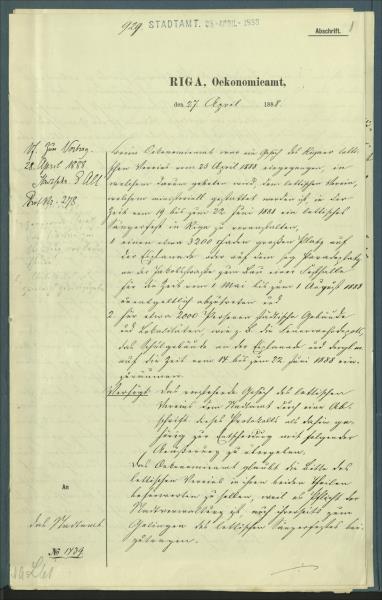 929 STADTAMT. 28-APRIL-1888
Abschrift. 1
RIGA, Oekonomieamt,
den 27 April 1888.
Vf. Zum Vortrag.
28 April 1888
Prot. Nr. 278
Beim Oekonomieamt ist ein Gesuch des Rigaer letti-
schen Vereins vom 23 April 1888 eingegangen, in
welchem darum gebeten wird, dem lettischen Verein,
welchem ministeriell gestattet worden ist, in der
Zeit vom 19 bis zum 22 Juni 1888 ein lettisches
Sängerfest in Riga zu veranstalten,
1 einen etwa 3200 Faden großen Platz auf
der Esplanade oder auf dem sog Paradeplatz
an der Jakobstraße zum Bau einer Festhalle
für die Zeit vom 1 Mai bis zum 1 August 1888
unentgeltlich abzutreten und
2. für etwa 2000 Personen städtische Gebäude
und Lokalitäten, wie z. B. die
das Schulgebäude an der Esplanade und
auf die Zeit vom 14 bis zum 22 Juni 1888 ein-
zuräumen.
Verfügt: Das vorstehende Gesuch des lettischen
Vereins dem Stadtamt durch eine Ab-
schrift dieses Protokolls
zur Entscheidung mit folgender
Äußerung zu übergeben.
Das Oekonomieamt glaubt die Bitte des
lettischen Vereins in ihren beiden Theilen
befürworten zu sollen, weil es Pflicht der
Stadtverwaltung ist, auch ihrerseits zum
Gelingen des lettischen Sängerfestes bei-
zutragen.
An
das Stadtamt
№ 1439